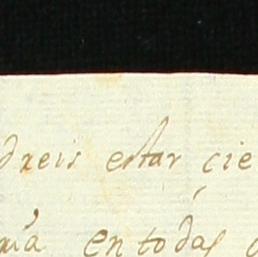 dreis estar cie
mía en todas